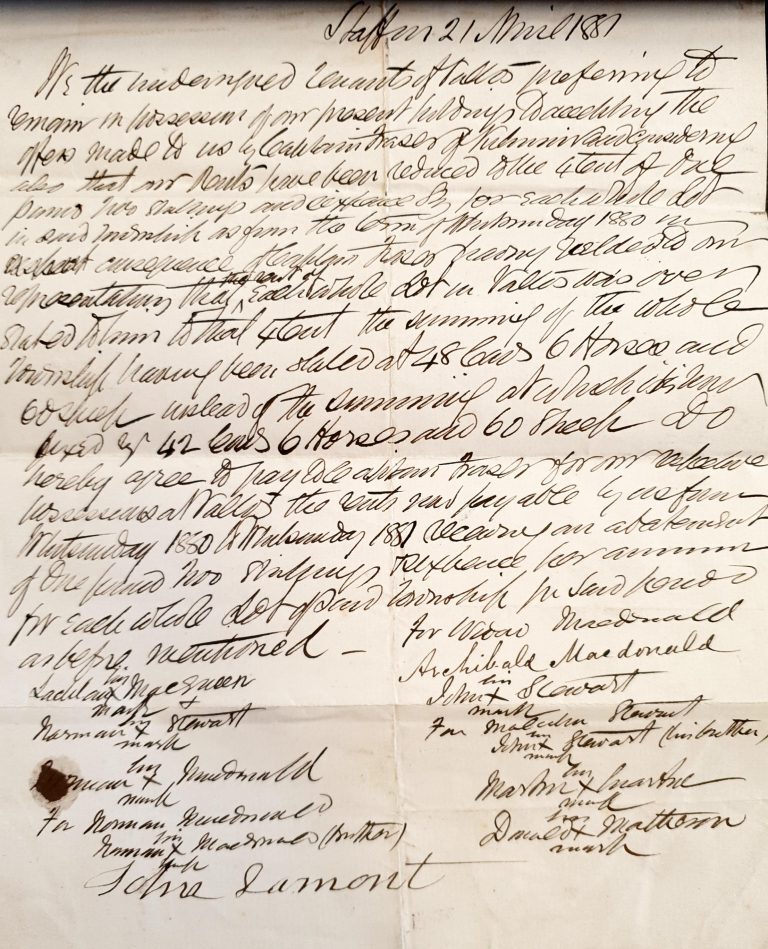 Staffin 21 April 1881
We the undersigned tenants of Valtos preferring to
remain in possession of our present holdings & accepting the
offers made to us by Captain Fraser of Kilmuir and considering
also that our Rents have been reduced to the extent of One
pound two shillings and sixpence Stg for Each whole Lot
in said township as from the term of Whitsunday 1880 in
consequence of Captain Fraser having yielded to our
representations that the rent of Each whole Lot in Valtos was over
stated to him to that Extent the summing of the whole
Township having been stated at 48 Cows 6 Horses and
60 sheep instead of the summing at which it is now
fixed by 42 Cows 6 Horses and 60 Sheep Do
hereby agree to pay to Captain Fraser for our respective
possessions at Valtos the rents now payable by us from
Whitsunday 1880 to Whitsunday 1881 receiving an abatement
of One pound two Shillings & sixpence per annum
for Each whole Lot of said township for said period
as before mentioned –
Lachlan his x mark MacQueen
Norman his x mark Stewart
his x mark Macdonald
For Norman Macdonald
Norman his x mark Macdonald (brother)
John Lamont
For Widow Macdonald
Archibald Macdonald
John his x mark Stewart
For Malcolm Stewart
John his x mark Stewart (his brother)
Martin his x mark Martin
Donald his x mark Matheson